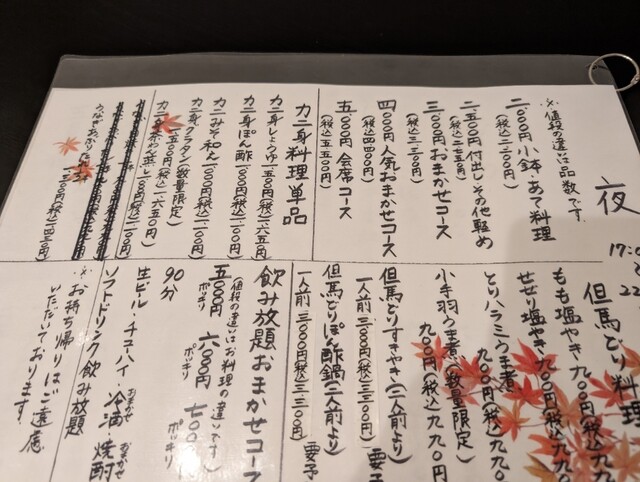 夜
※値段の違いは品数です。
二、〇〇〇円 小鉢・あて料理
(税込二、二〇〇円)
二、五〇〇円 付出し その他軽め
(税込二、七五〇円)
三、〇〇〇円 おまかせコース
(税込三、三〇〇円)
四、〇〇〇円 人気おまかせコース
(税込四、四〇〇円)
五、〇〇〇円 会席コース
(税込五、五〇〇円)
カニ身料理単品
カニ身しょうゆ 一、五〇〇円(税込一、六五〇円)
カニ身ぽん酢 一、〇〇〇円(税込一、一〇〇円)
カニみそ和え 一、〇〇〇円(税込一、一〇〇円)
カニ身グラタン(数量限定)
一、五〇〇円(税込一、六五〇円)
但馬どり料理
もも塩やき 九〇〇円(税込
せせり塩やき 九〇〇円(税込
とりハラミうま煮
九〇〇円(税込九九〇
小手羽うま煮(数量限定)
九〇〇円(税込九九〇円
但馬どりすきやき(二人前より)
一人前三、〇〇〇円(税込三、三〇〇円) 要予
但馬どりぽん酢鍋(二人前より)
一人前三、〇〇〇円(税込三、三〇〇円) 要予
飲み放題おまかせコース
(値段の違いはお料理の違いです)
五、〇〇〇円ポッキリ 六、〇〇〇円ポッキリ 七、〇〇ポッキリ
90分
生ビール・チューハイ・冷酒おまかせ・焼酎おまかせ
ソフトドリンク飲み放題
※お持ち帰りはご遠慮
いただいております。